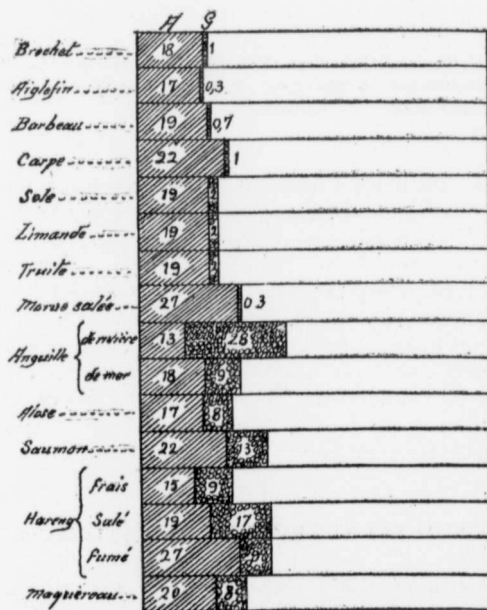 A G
Brochet 18 1
Aiglefin 17 0,3
Barbeau 19 0,7
Carpe 22 1
Sole 19
Limande 19 2
Truite 19 2
Morue salée 27 0 3
Anguille de rivière 13 28
de mer 18 9
Alose 17 8
Saumon 22 13
Hareng frais 15 9
Salé 19 17
fumé 27
Maquereau 20 8